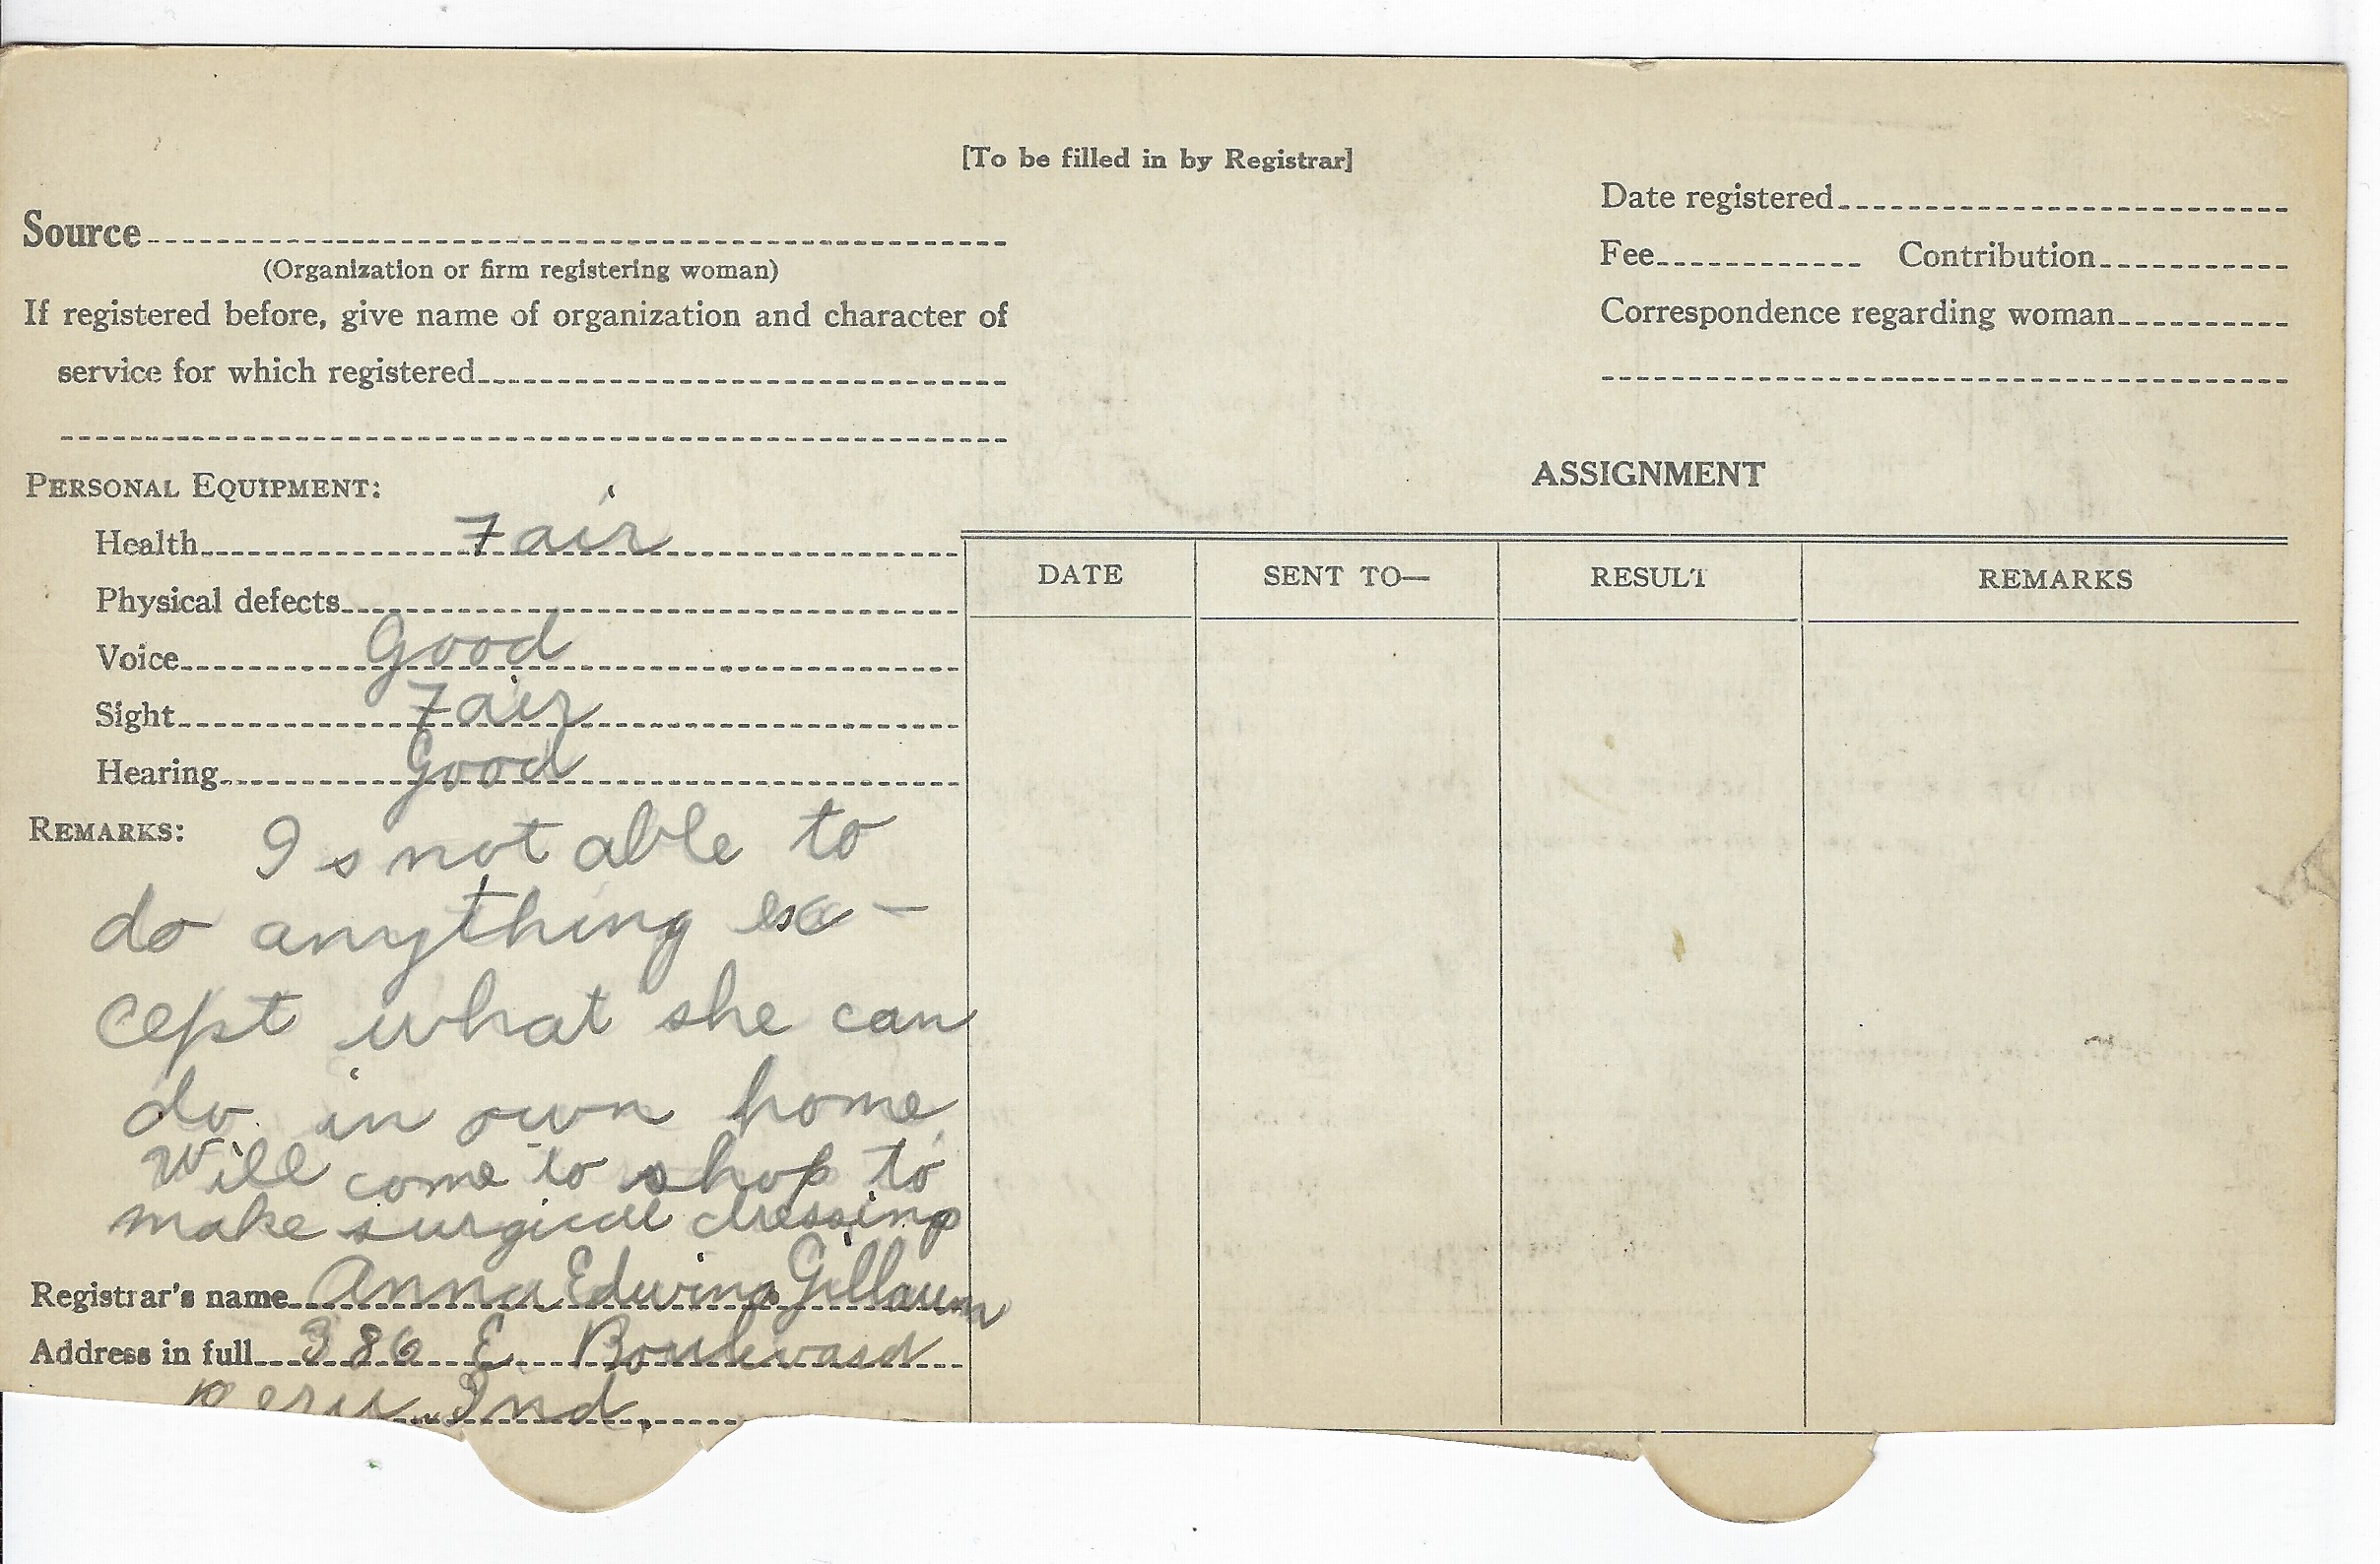 [To be filled in by Registrar]
Source
(Organization or firm registering woman)
If registered before, give name of organization and character of
service for which registered
Date registered
Fee Contribution
Correspondence regarding woman
PERSONAL EQUIPMENT:
Health Fair
Physical defects
Voice Good
Sight Fair
Hearing Good
REMARKS: Is not able to
do anything ex-
cept what she can
do in own home.
Will come to shop to
make surgical dressing
Registrar's name Anna Edwina Gillaum
Address in full 386 E. Boulevard
Peru Ind.
ASSIGNMENT
DATE SENT TO— RESULT REMARKS